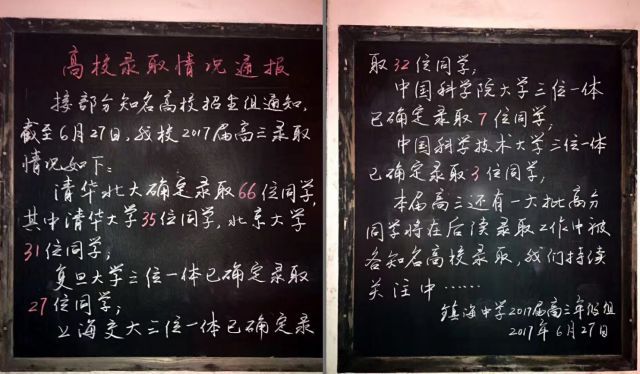 高校录取情况通报
接部分知名高校招生组通知,
截至6月27日,我校2017届高三录取
情况如下:
清华北大确定录取66位同学,
其中清华大学35位同学,北京大学
31位同学;
复旦大学三位一体已确定录取
27位同学;
上海交大三位一体已确定录
取32位同学;
中国科学院大学三位一体
已确定录取7位同学;
中国科学技术大学三位一体
已确定录取3位同学;
本届高三还有一大批高分
同学将在后续录取工作中被
各知名高校录取,我们持续
关注中……
镇海中学2017届高三年级组
2017年6月27日